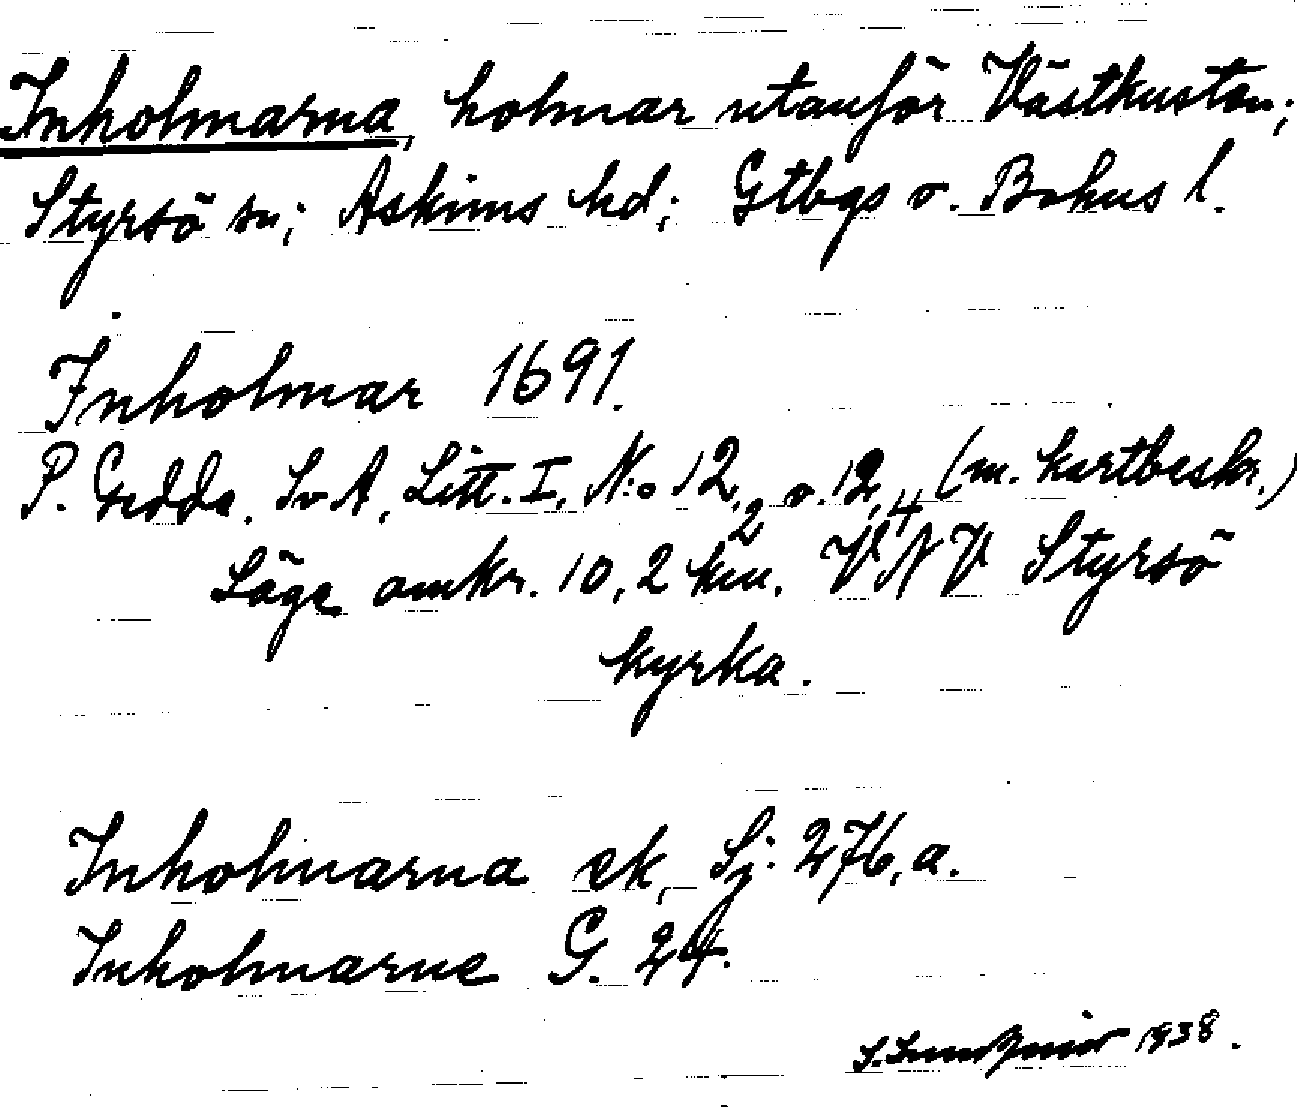 Inholmarna, holmar utanför Västkusten;
Styrsö sn; Askims hd; Gtbgs o. Bohus l.
Inholmar 1691.
P. Gedda. Sv A, Litt. I, N:o 12,2 o. 12,4 (m. kartbeskr.)
Läge omkr. 10,2 km. VNV Styrsö
kyrka.
Inholmarna ek, Sj. 276,a.
Inholmarne G. 24.
S. Lundquist 1938.